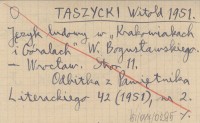 TASZYCKI Witold 1951.
Język ludowy w „Krakowiakach
i Góralach" W. Bogusławskiego.
— Wrocław. Stron 11.
Odbitka z Pamiętnika
Literackiego 42 (1951), nr 2.